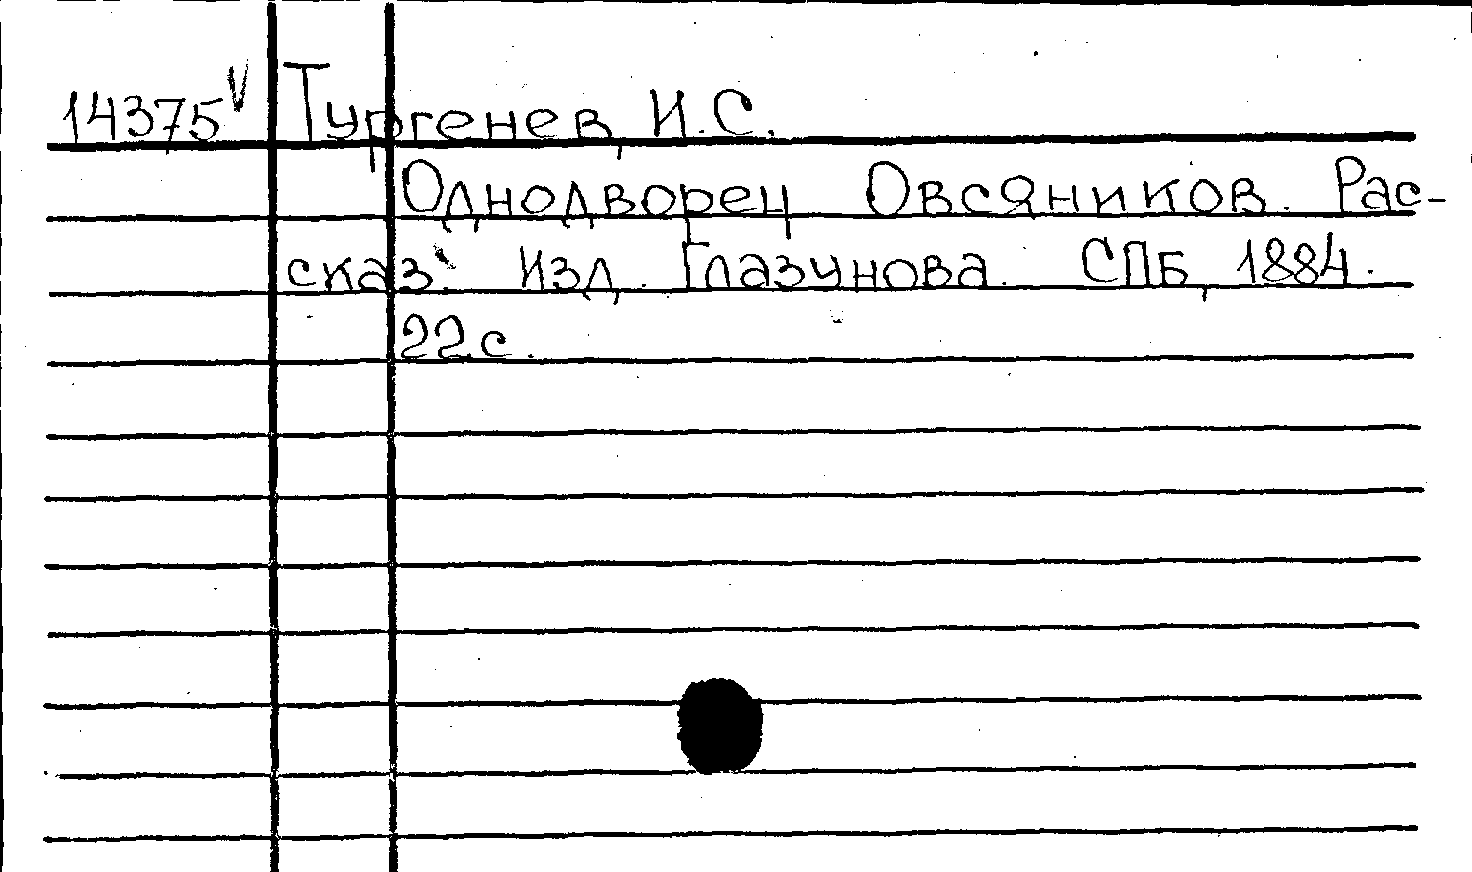 14375 V Тургенев, И.С.
Однодворец Овсяников. Рас-
сказ. Изд. Глазунова. СПБ, 1884.
22 с.